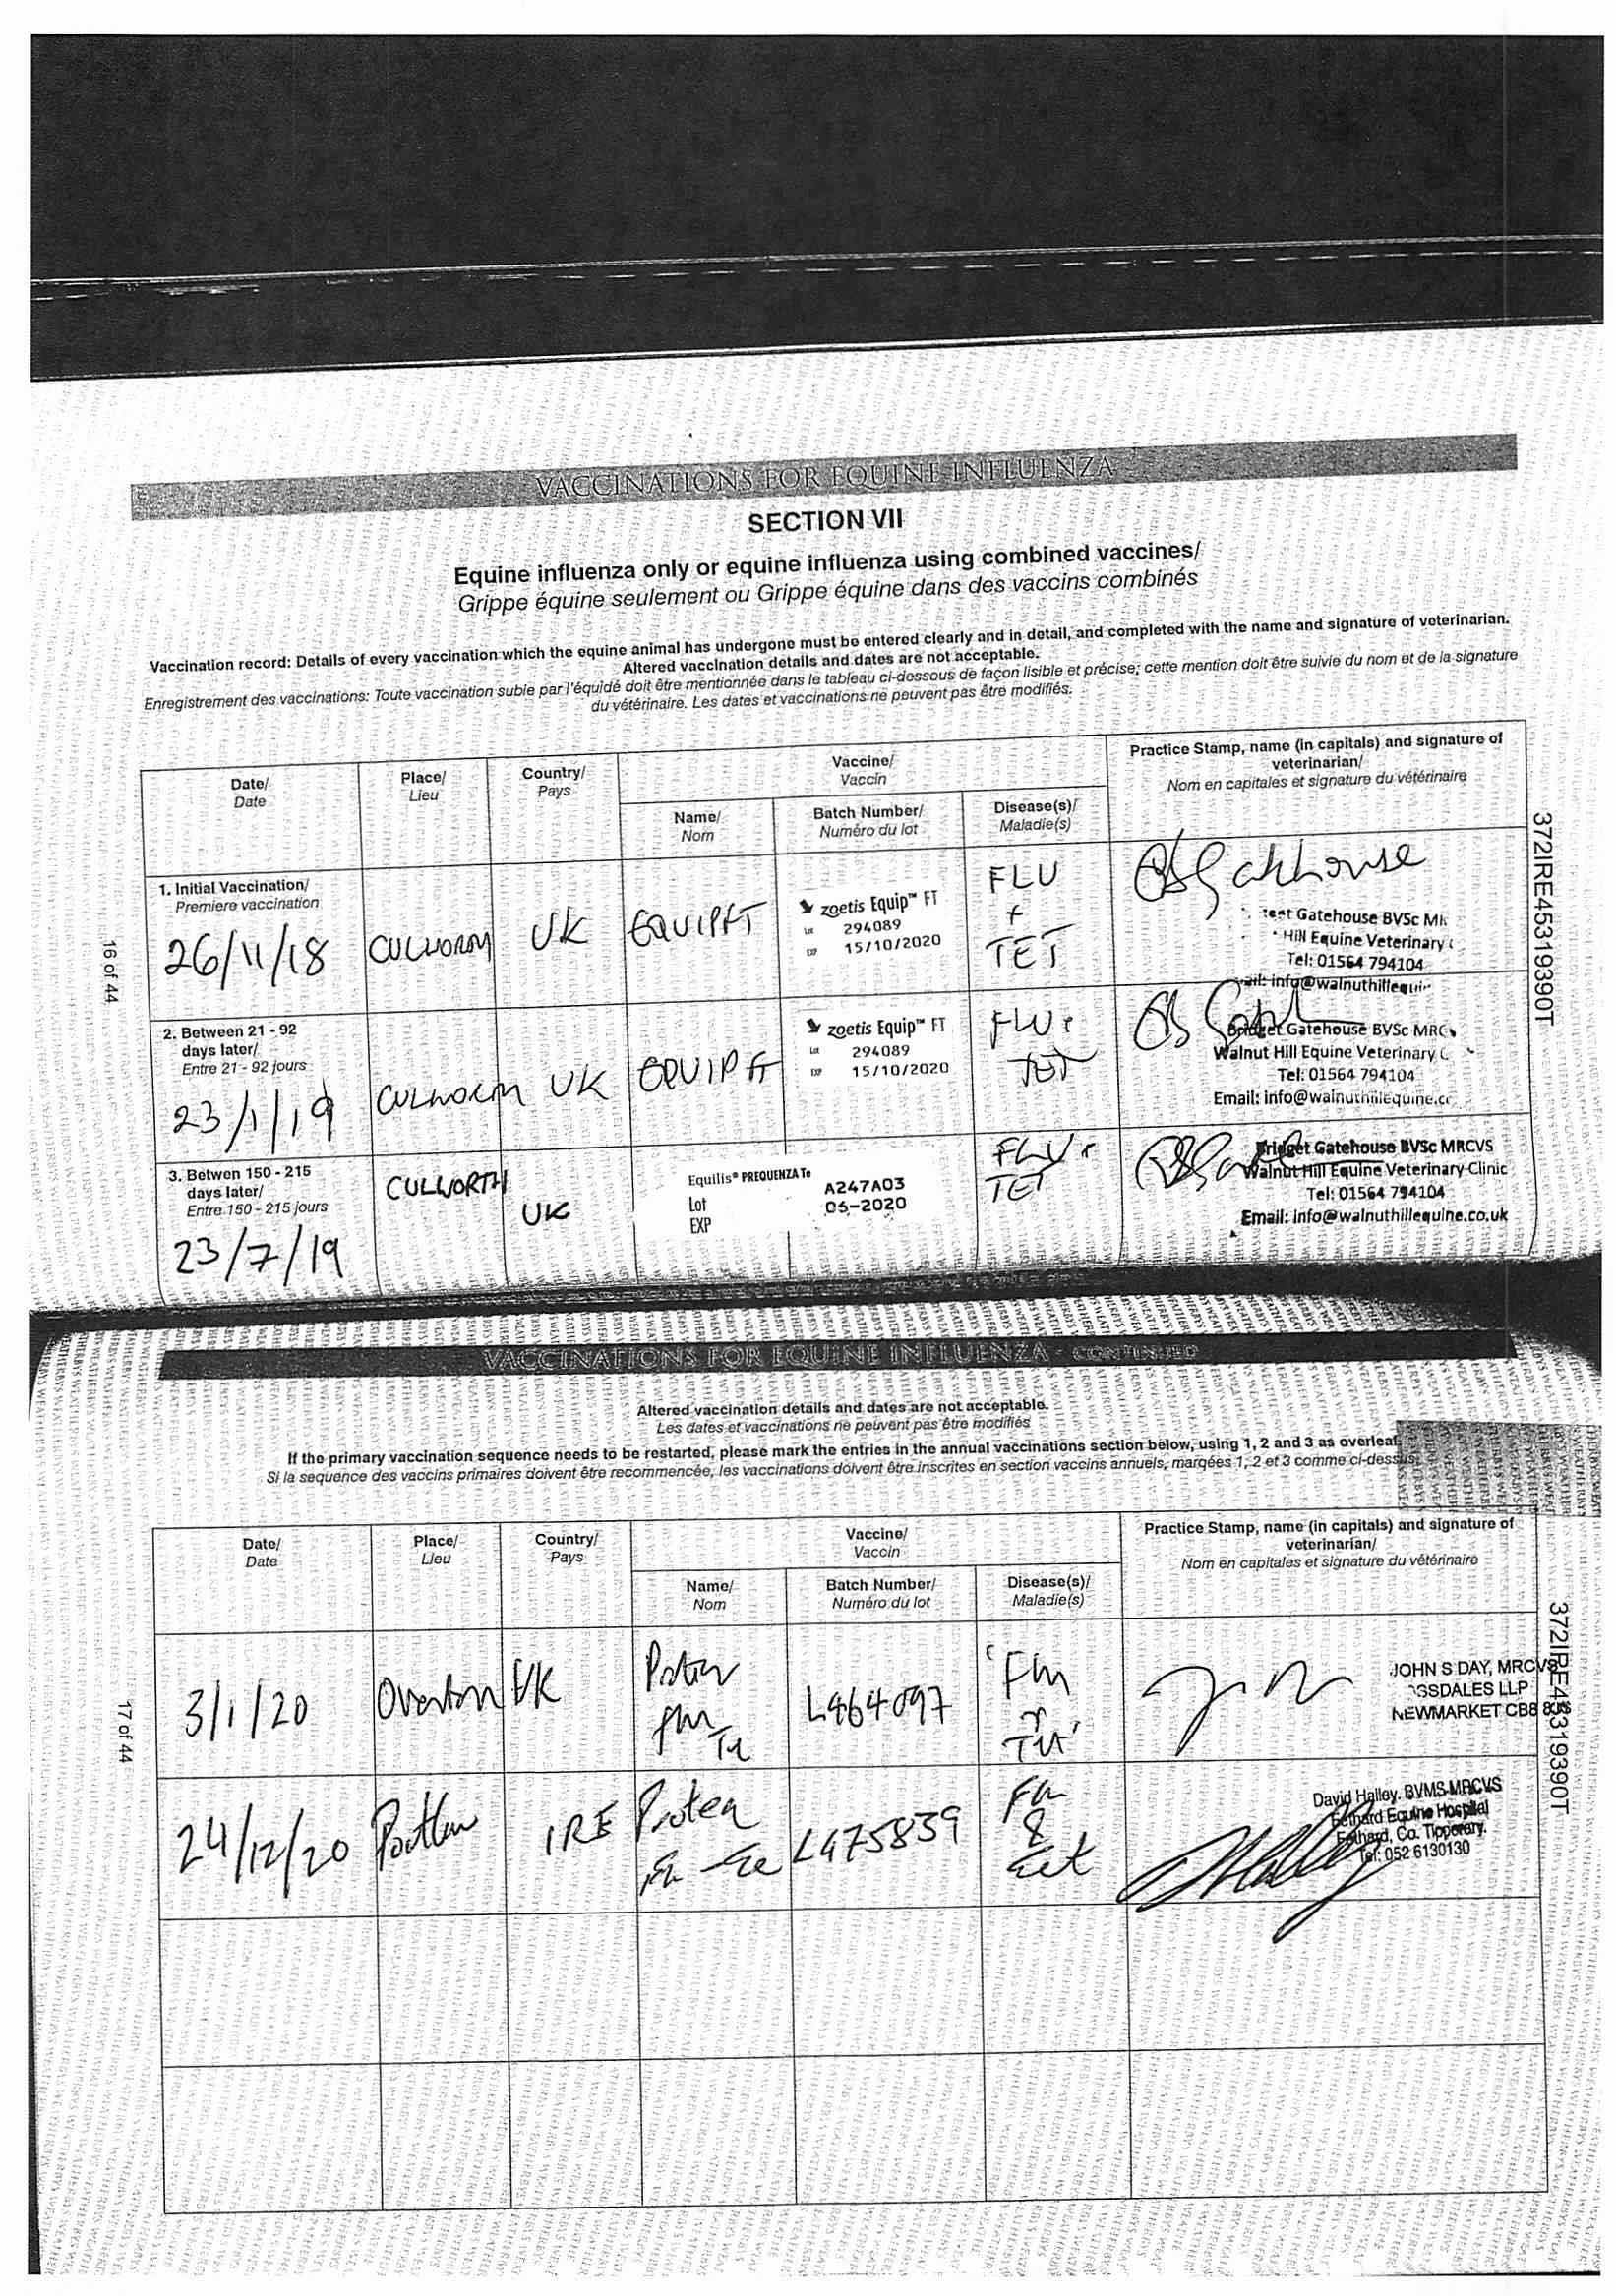 VACCINATIONS FOR EQUINE INFLUENZA
SECTION VII
Equine influenza only or equine influenza using combined vaccines/
Grippe équine seulement ou Grippe équine dans des vaccins combinés
Vaccination record: Details of every vaccination which the equine animal has undergone must be entered clearly and in detail, and completed with the name and signature of veterinarian.
Altered vaccination details and dates are not acceptable.
Enregistrement des vaccinations: Toute vaccination subie par l'équidé doit être mentionnée dans le tableau ci-dessous de façon lisible et précise; cette mention doit être suivie du nom et de la signature
du vétérinaire. Les dates et vaccinations ne peuvent pas être modifiés.
Date/
Date
Place/
Lieu
Country/
Pays
Vaccine/
Vaccin
Name/
Nom
Batch Number/
Numéro du lot
Disease(s)/
Maladie(s)
Practice Stamp, name (in capitals) and signature of
veterinarian/
Nom en capitales et signature du vétérinaire
1. Initial Vaccination/
Premiere vaccination
26/11/18
CULWORTH
UK
EQUIPFT
zoetis Equip™ FT
Lot 294089
EXP 15/10/2020
FLU
+
TET
Gatehouse BVSc
Hill Equine Veterinary
Tel: 01564 794104
info@walnuthillequi
2. Between 21 - 92
days later/
Entre 21 - 92 jours
23/1/19
CULWORTH
UK
EQUIPFT
zoetis Equip™ FT
Lot 294089
EXP 15/10/2020
FLU+
TET
Bridget Gatehouse BVSc MRC
Walnut Hill Equine Veterinary C
Tel: 01564 794104
Email: info@walnuthillequine.co
3. Betwen 150 - 215
days later/
Entre 150 - 215 jours
23/7/19
CULWORTH
UK
Equilis® PREQUENZA Te
Lot A247A03
EXP 06-2020
FLU+
TET
Bridget Gatehouse BVSc MRCVS
Walnut Hill Equine Veterinary Clinic
Tel: 01564 794104
Email: info@walnuthillequine.co.uk
16 of 44
372IRE45319390T
VACCINATIONS FOR EQUINE INFLUENZA - CONTINUED
Altered vaccination details and dates are not acceptable.
Les dates et vaccinations ne peuvent pas être modifiés
If the primary vaccination sequence needs to be restarted, please mark the entries in the annual vaccinations section below, using 1, 2 and 3 as overleaf.
Si la sequence des vaccins primaires doivent être recommencée, les vaccinations doivent être inscrites en section vaccins annuels, marqées 1, 2 et 3 comme ci-dessus.
Date/
Date
Place/
Lieu
Country/
Pays
Vaccine/
Vaccin
Name/
Nom
Batch Number/
Numéro du lot
Disease(s)/
Maladie(s)
Practice Stamp, name (in capitals) and signature of
veterinarian/
Nom en capitales et signature du vétérinaire
3/1/20
Overton
UK
L464097
Flu
JOHN S DAY, MRCVS
NEWMARKET CB8
24/12/20
IRE
Proteq
L475839
Flu
&
Tet
David Halley. BVMS MRCVS
Fethard Equine Hospital
Fethard, Co. Tipperary.
Tel: 052 6130130
17 of 44
372IRE45319390T